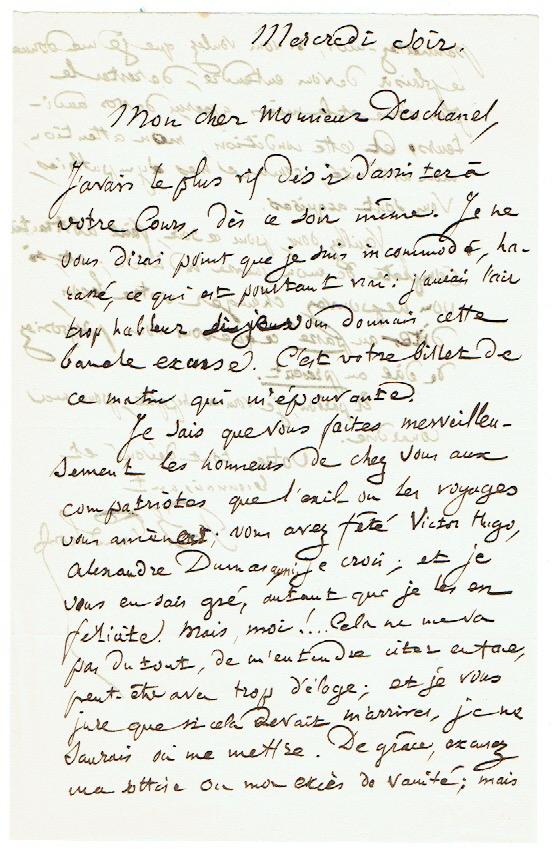 Mercredi soir.
Mon cher Monsieur Deschanel,
J'avais le plus vif désir d'assister à
votre Cours, dès ce soir même. Je ne
vous dirai point que je suis incommodé, ha-
rassé, ce qui est pourtant vrai: j'aurais l'air
trop hableur si je vous donnais cette
banale excuse. C'est votre billet de
ce matin qui m'épouvante.
Je sais que vous faites merveilleu-
sement les honneurs de chez vous aux
compatriotes que l'exil ou les voyages
vous amènent; vous avez fêté Victor Hugo,
Alexandre Dumas aussi, je crois; et je
vous en sais gré, autant que je les en
félicite. Mais, moi!... Cela ne me va
pas du tout, de m'entendre citer en face,
peut-être avec trop d'éloge; et je vous
jure que si cela devait m'arriver, je ne
saurais où me mettre. De grâce, excusez
ma sottise ou mon excès de vanité; mais